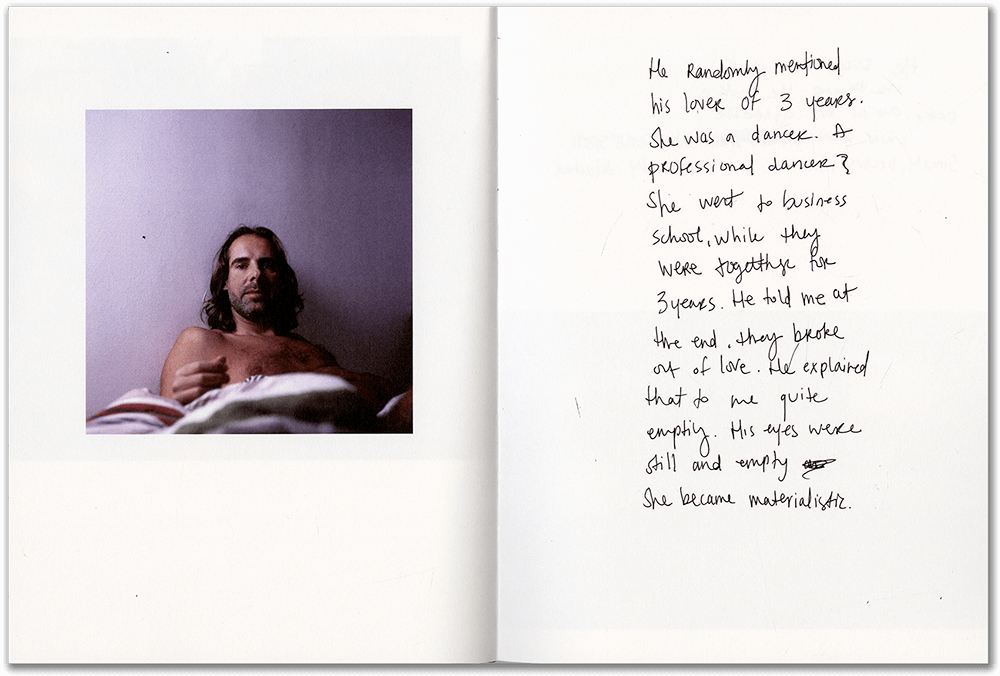 He Randomly mentioned
his lover of 3 years.
She was a dancer. A
professional dancer?
She went to business
school, while they
were togetther for
3 years. He told me at
the end, they broke
out of love. He explained
that to me quite
emptily. His eyes were
still and empty
She became materialistic.